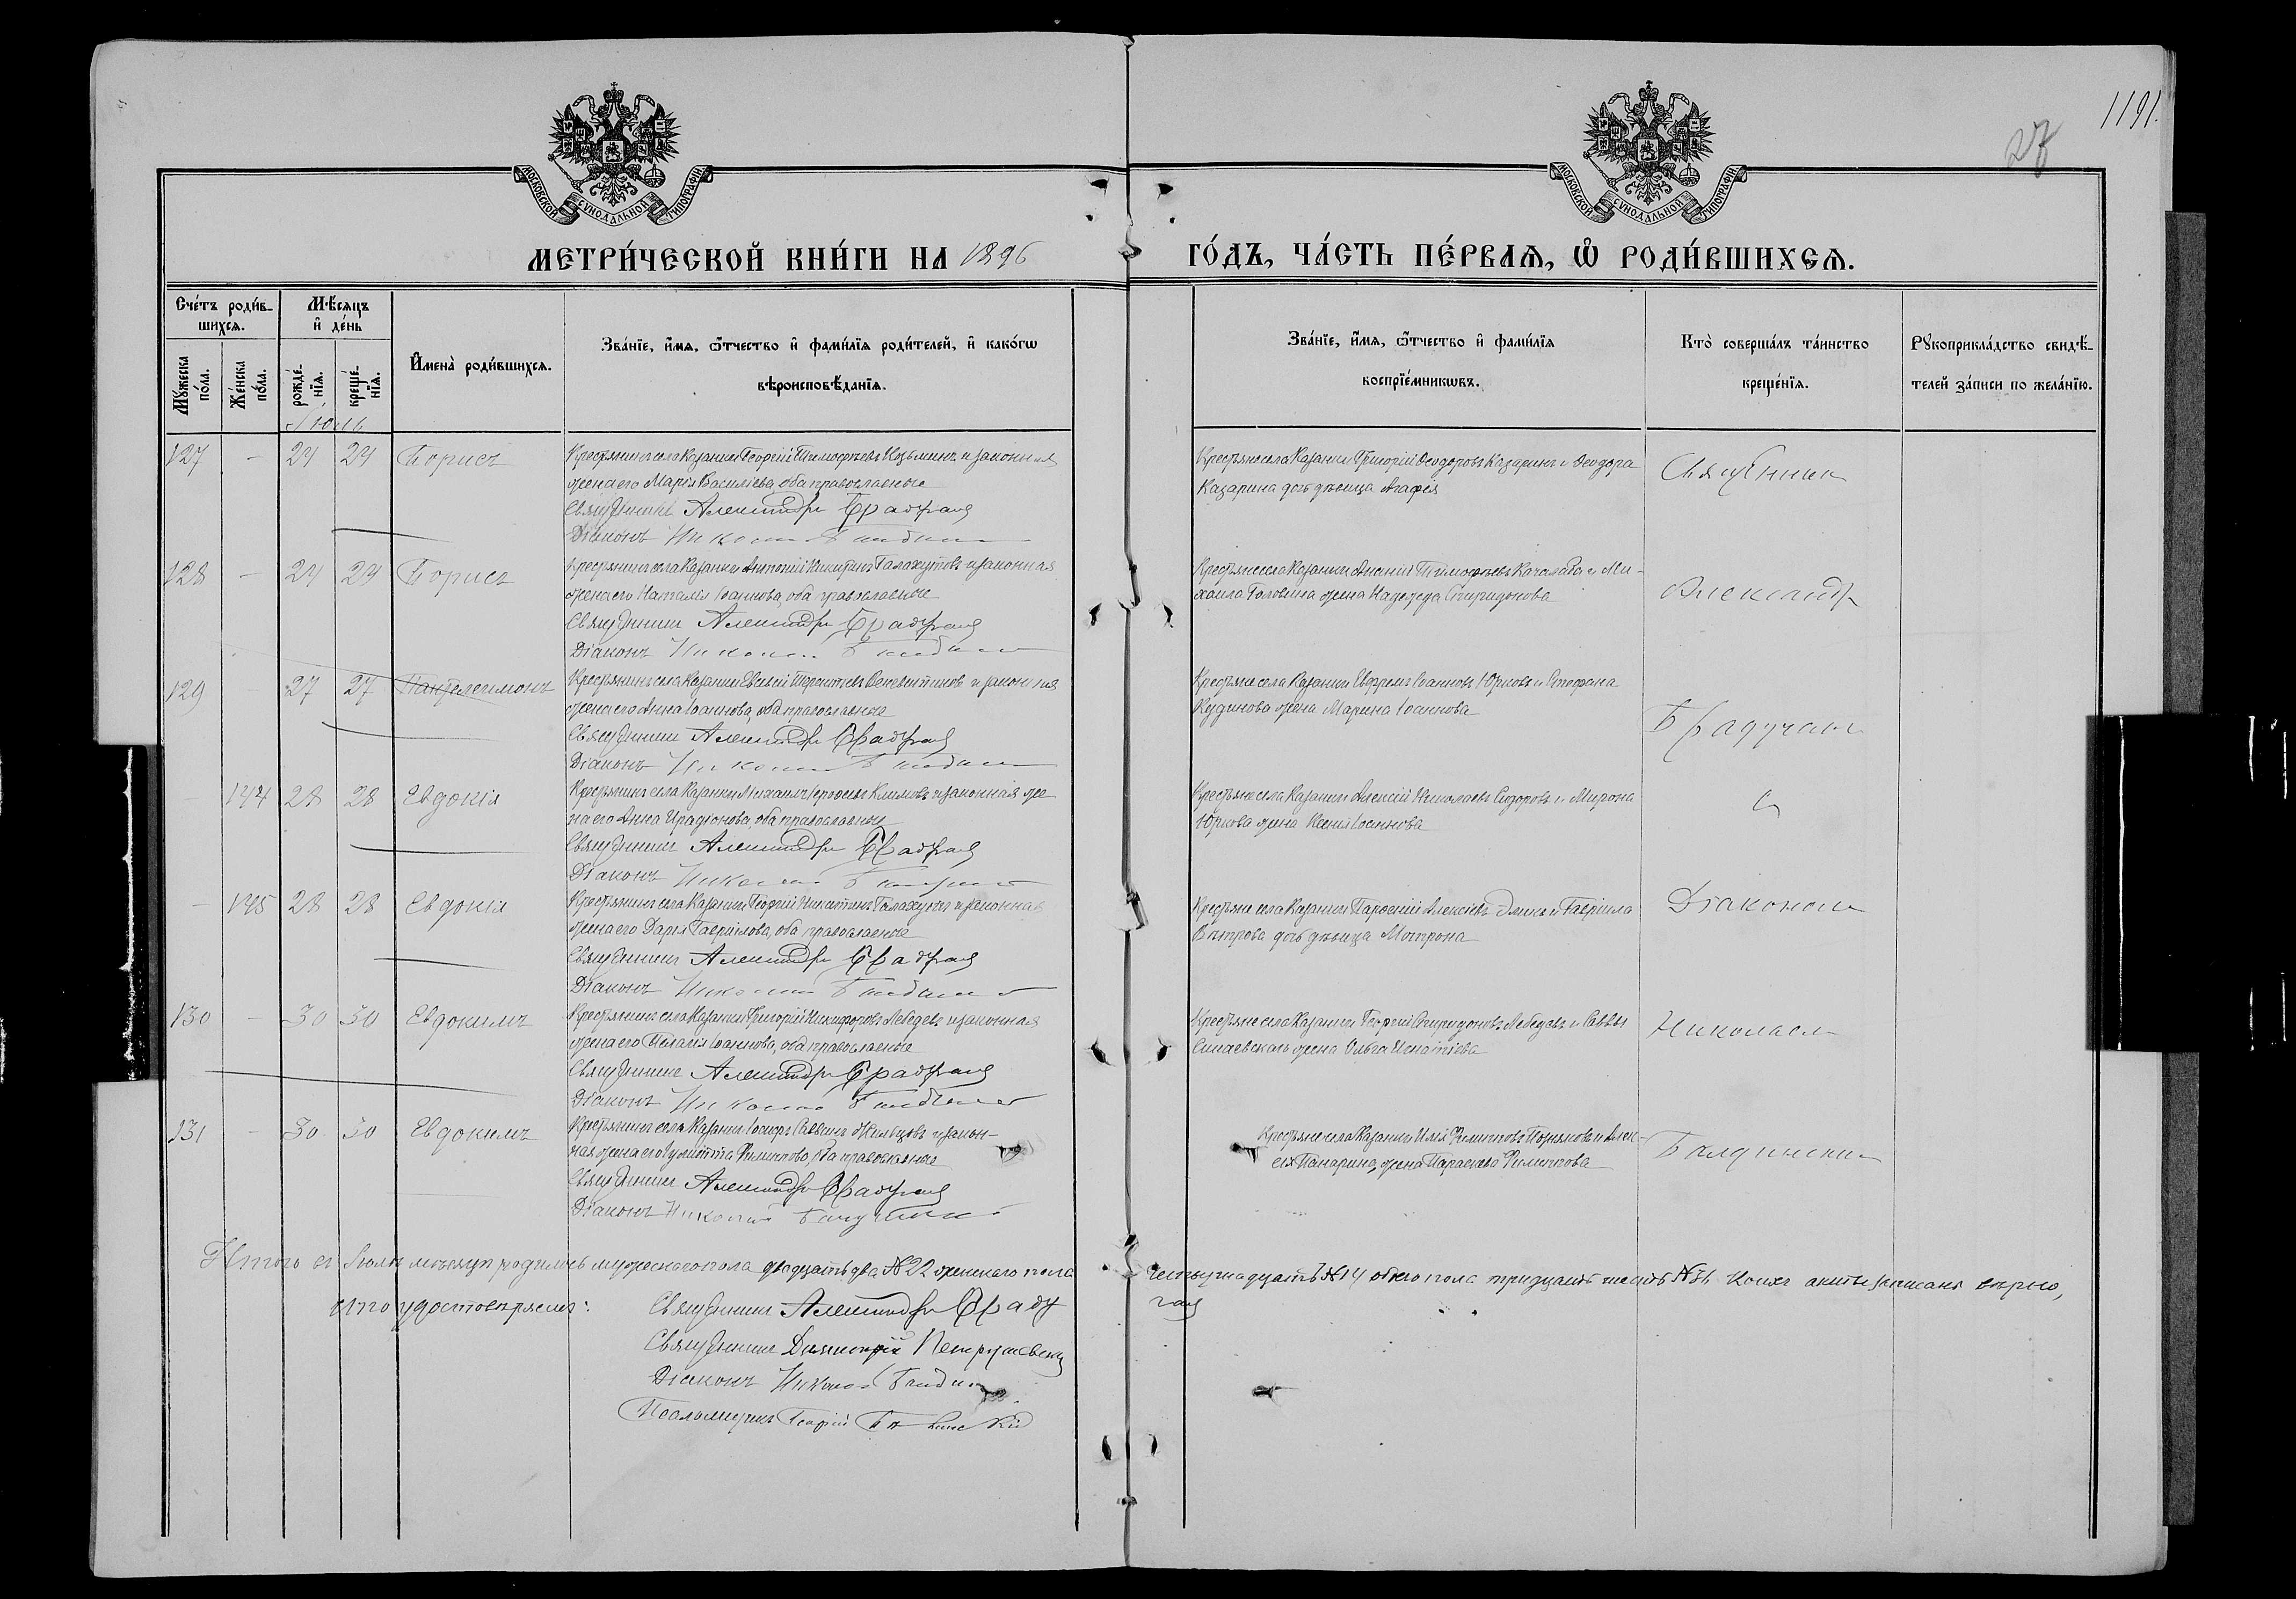 1191.
27
МОСКОВСКОЙ СѴНОДАЛЬНОЙ ТИПОГРАФІИ
МОСКОВСКОЙ СѴНОДАЛЬНОЙ ТИПОГРАФІИ
МЕТРИ́ЧЕСКОЙ КНИ́ГИ НА 1896 ГО́ДЪ, ЧА́СТЬ ПЕ́РВАѦ, Ѡ҆ РОДИ́ВШИХСѦ.
Сче́тъ роди́в-
шихсѧ.
Мꙋжеска по́ла.
Же́нска по́ла.
Мѣ́сѧцъ
и҆ де́нь
рожде́-
нїѧ.
креще́-
нїѧ.
И҆мена̀ роди́вшихсѧ.
Зва́нїе, и҆́мѧ, ѻ҆́тчество и҆ фами́лїѧ роди́телей, и҆ како́гѡ
вѣроисповѣ́данїѧ.
Зва́нїе, и҆́мѧ, ѻ҆́тчество и҆ фами́лїѧ
воспрїе́мникѡвъ.
Кто̀ соверша́лъ та́инство
креще́нїѧ.
Рꙋкоприкла́дство свидѣ́-
телей за́писи по жела́нїю.
Іюль
127 - 24 24 Борисъ
Крестьянинъ села Казанки Георгій Тимофѣевъ Кузьминъ и законная
жена его Марія Василіева, оба православные
Священникъ Александръ Брадучанъ
Діаконъ Николай
Крестьяне села Казанки Григорій Ѳеодоровъ Казаринъ и Ѳеодора
Казарина дочь дѣвица Агафія
Священник
128 - 24 24 Борисъ
Крестьянинъ села Казанки Антоній Никитинъ Галахутовъ и законная
жена его Наталія Іоаннова, оба православные
Священникъ Александръ Брадучанъ
Діаконъ Николай
Крестьяне села Казанки Ананій Тимофѣевъ и Ми-
хаила Головина жена Надежда Спиридонова
Александр
129 27 27 Пантелеимонъ
Крестьянинъ села Казанки Евсевій Терентіевъ и законная
жена его Анна Іоаннова, оба православные
Священникъ Александръ Брадучанъ
Діаконъ Николай
Крестьяне села Казанки Ефремъ Іоанновъ Юрковъ и Стефана
Кудинова жена Марина Іоаннова
Брадучан
144 28 28 Евдокія
Крестьянинъ села Казанки Михаилъ Климовъ и законная же
на его Анна Иродіонова, оба православные
Священникъ Александръ Брадучанъ
Діаконъ Николай
Крестьяне села Казанки Алексій Николаевъ Сидоровъ и Мирона
Юркова жена Ксенія Іоаннова
с
- 145 28 28 Евдокія
Крестьянинъ села Казанки Георгій Никитинъ Галахутовъ и законная
жена его Дарія Гавриилова, оба православные
Священникъ Александръ Брадучанъ
Діаконъ Николай
Крестьяне села Казанки Парѳеній Алексіевъ и Гавріила
Вѣтрова дочь дѣвица Матрона
Діаконом
130 - 30 30 Евдокимъ
Крестьянинъ села Казанки Григорій Никифоровъ Лебедевъ и законная
жена его Пелагія Іоаннова, оба православные
Священникъ Александръ Брадучанъ
Діаконъ Николай
Крестьяне села Казанки Георгій Спиридоновъ Лебедевъ и Саввы
Синаевскаго жена Ольга Игнатіева
Николаем
131 - 30 30 Евдокимъ
Крестьянинъ села Казанки Іосифъ Саввинъ и закон-
ная жена его Іулитта Филиппова, оба православные
Священникъ Александръ Брадучанъ
Діаконъ Николай
Крестьяне села Казанки Илія Филипповъ и Алек-
сія Панарина, жена Параскева Филиппова
Итого въ Іюлѣ мѣсяцѣ родилось мужескаго пола двадцать два №22 женскаго пола четырнадцать №14 обоего пола тридцать шесть №36. Коихъ акты записаны вѣрно,
что удостовѣряемъ: Священникъ Александръ Брадучанъ
Священникъ Димитрій
Діаконъ Николай
Псаломщикъ Георгій